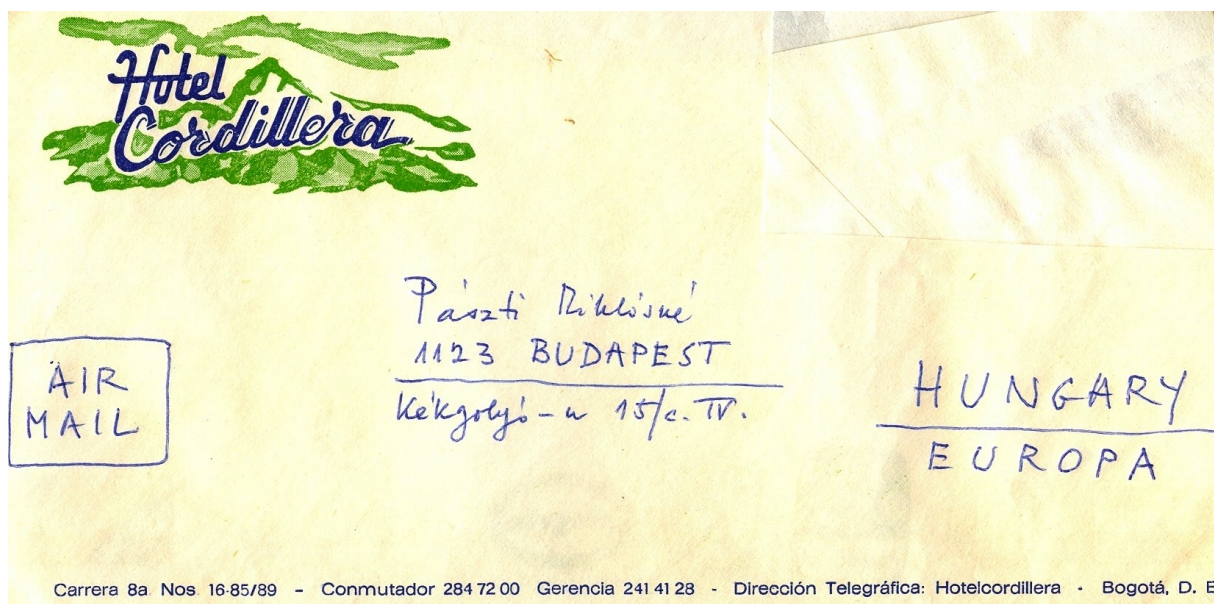 Hotel
Cordillera
Pászti Miklósné
1123 BUDAPEST
Kékgolyó-u 15/c. IV.
AIR
MAIL
HUNGARY
EUROPA
Carrera 8a. Nos. 16-85/89 - Conmutador 284 72 00 Gerencia 241 41 28 - Dirección Telegráfica: Hotelcordillera - Bogotá, D. E